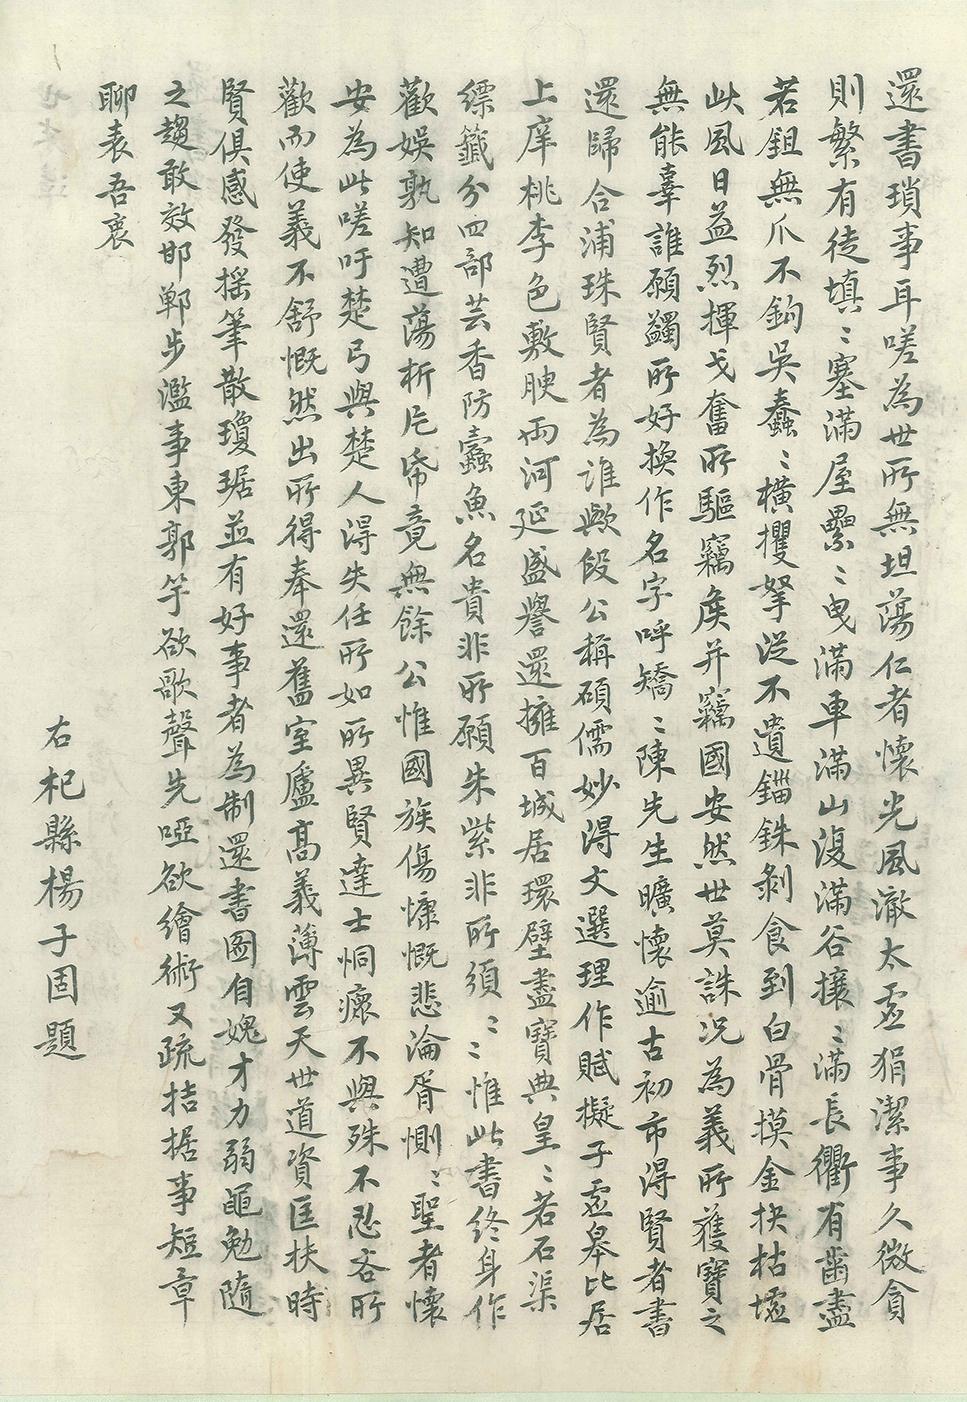 還書瑣事耳嗟為世所無坦蕩仁者懷光風澈太虛狷潔事久微貪
則繁有徒填〻塞滿屋纍〻曳滿車滿山復滿谷攘〻滿長衢有齒盡
若鉏無爪不鈎吳蠢〻橫攫拏從不遺錙銖剝食到白骨摸金抉枯墟
此風日益烈揮戈奮所驅竊矦并竊國安然世莫誅況為義所獲寶之
無能辜誰願蠲所好換作名字呼矯〻陳先生曠懷逾古初市得賢者書
還歸合浦珠賢者為誰歟段公稱碩儒妙得文選理作賦擬子虛皋比居
上庠桃李色敷腴兩河延盛譽還擁百城居環壁盡寶典皇〻若石渠
縹籤分四部芸香防蠹魚名貴非所願朱紫非所須〻惟此書終身作
歡娛孰知遭蕩析片帋竟無餘公惟國族傷慷慨悲淪胥惻〻聖者懷
安為此嗟吁楚弓與楚人得失任所如所異賢達士恫瘝不與殊不忍吝所
歡而使義不舒慨然出所得奉還舊室廬高義薄雲天世道資匡扶時
賢俱感發搖筆散瓊琚並有好事者為制還書图自媿才力弱黽勉隨
之趨敢效邯鄲步濫事東郭竽欲歌聲先啞欲繪術又疏拮据事短章
聊表吾衷
右杞縣楊子固題